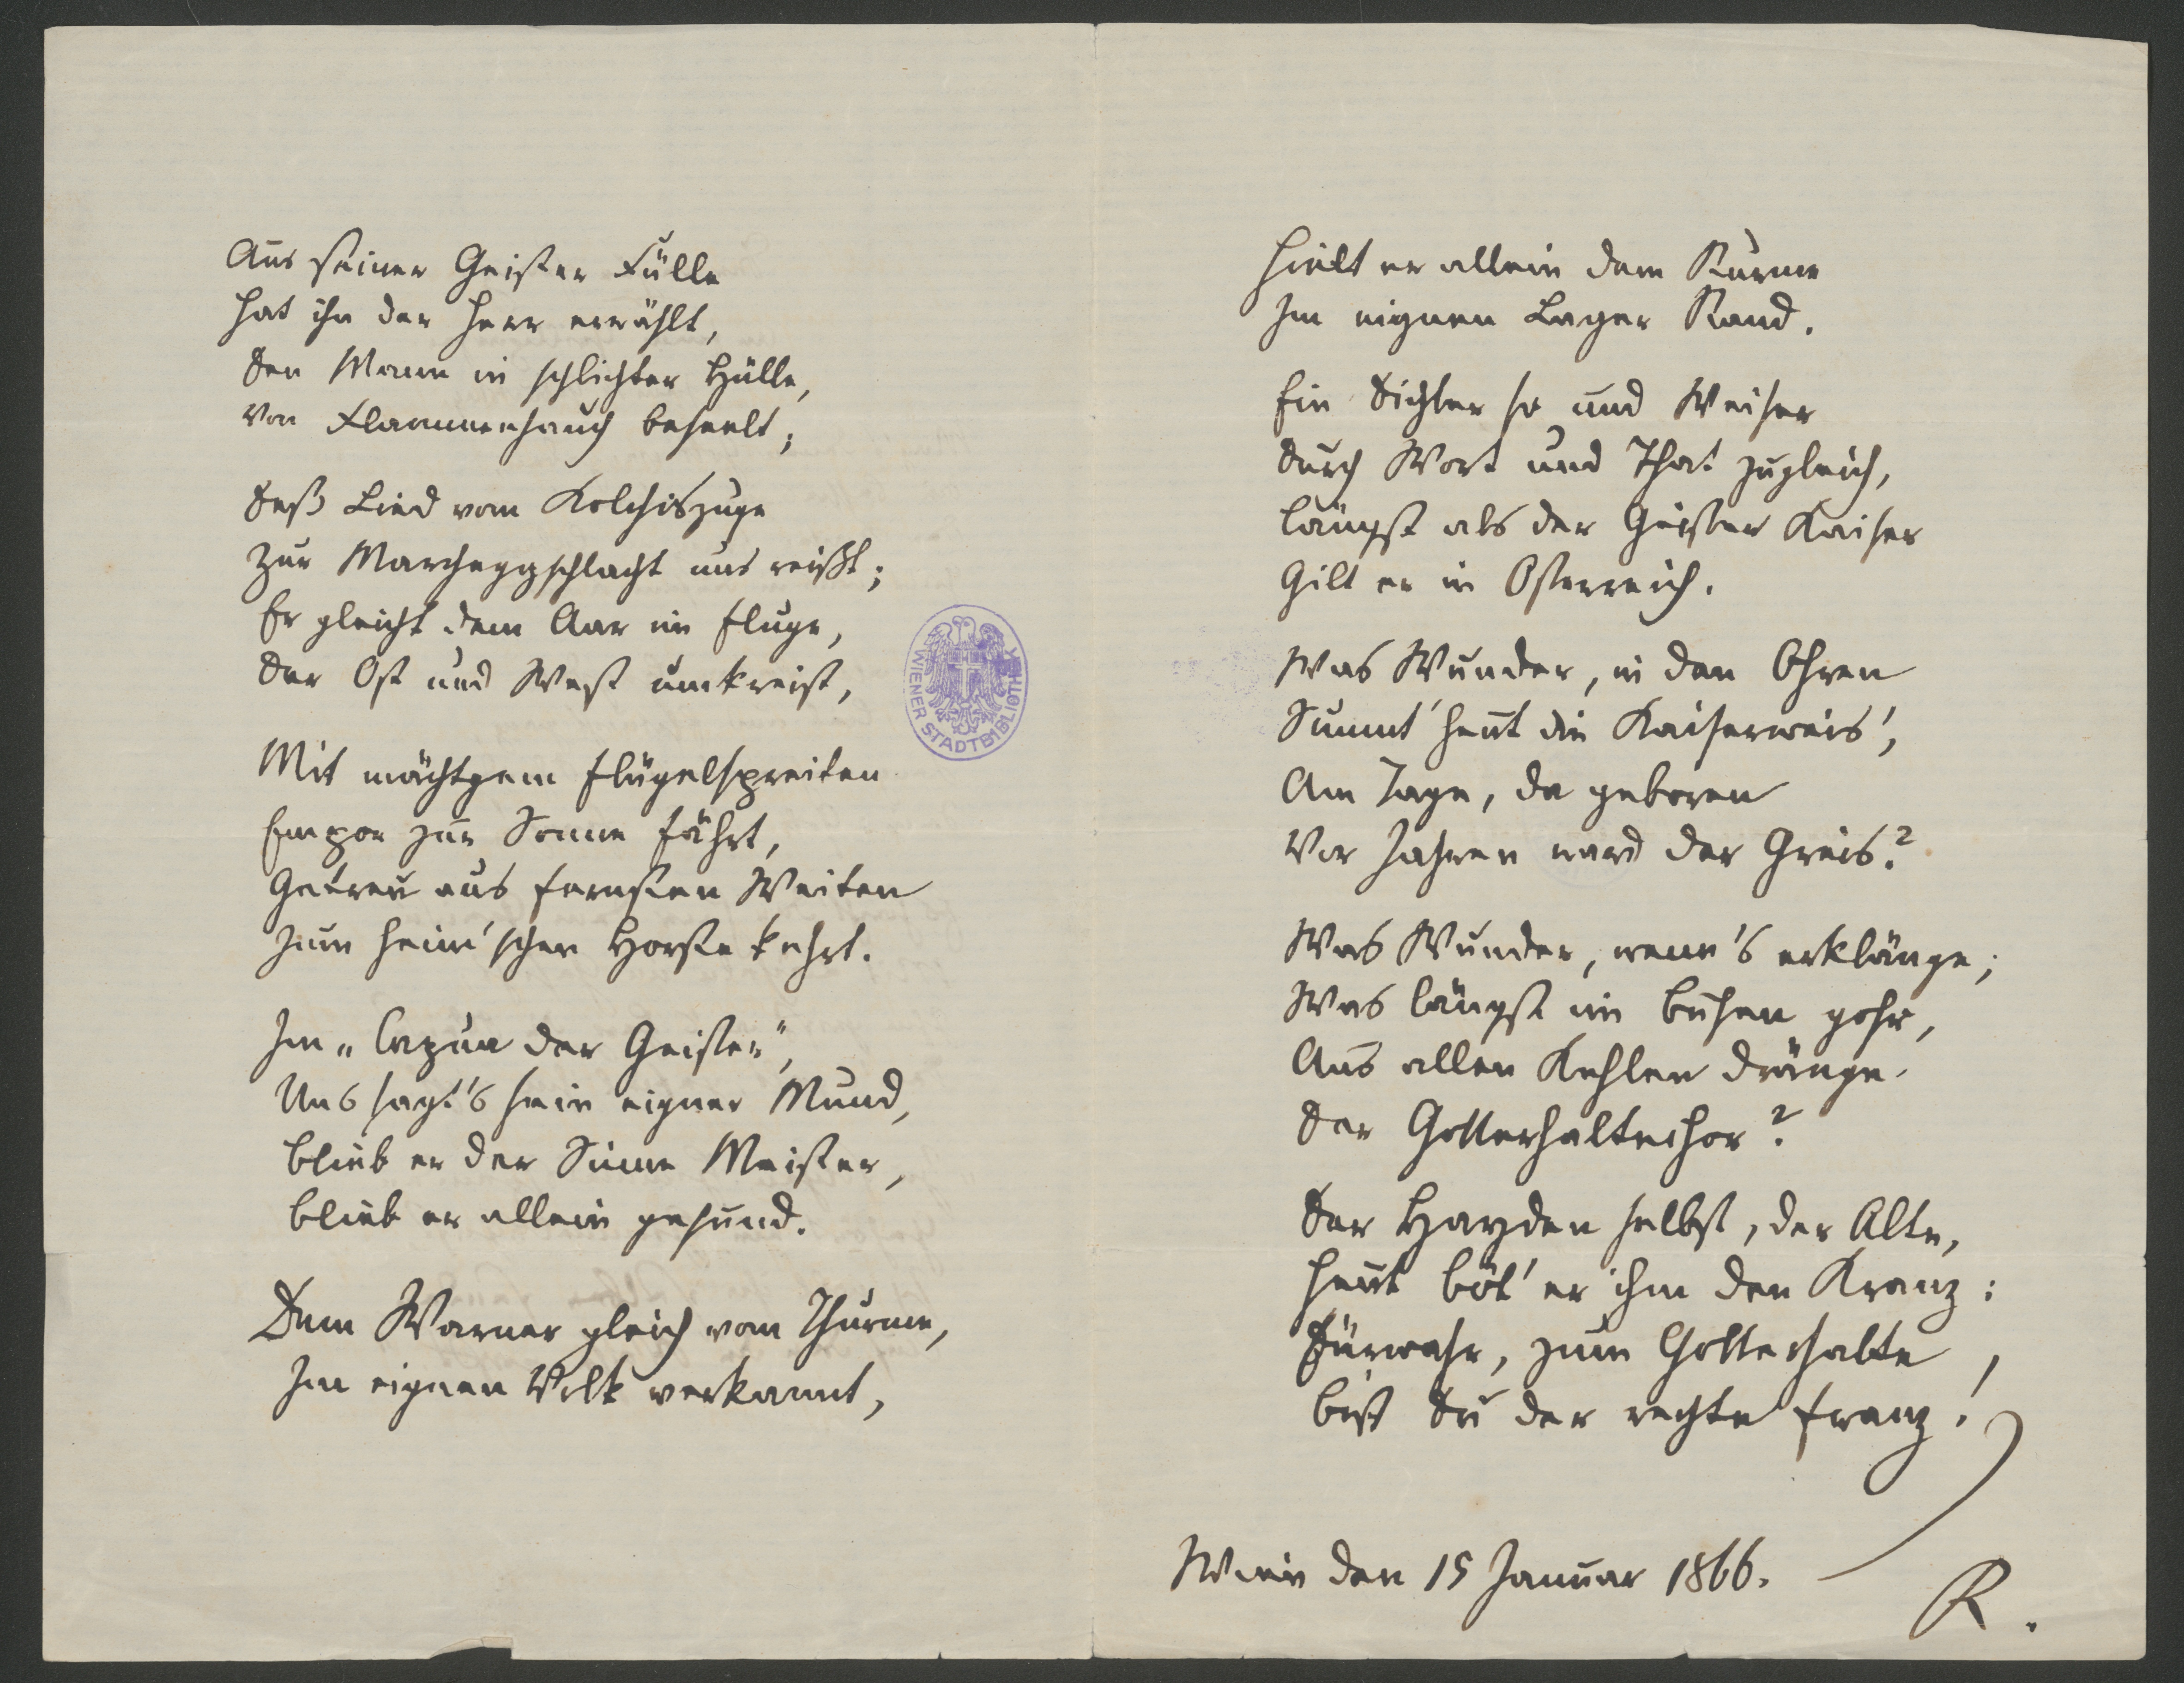 Aus seiner Geister Fülle
Hat ihn der Herr erwählt,
Den Mann in schlichter Hülle,
Von Flammenhauch beseelt;
Deß Lied vom Kolchiszuge
Zur Marcheggschlacht uns reißt;
Er gleicht dem Aar im Fluge,
Der Ost und West umkreist,
Mit mächtgem Flügelspreiten
Empor zur Sonne fährt,
Getreu aus fernsten Weiten
Zum heim'schen Horste kehrt.
Im „Capua der Geister",
Uns sagt's sein eigner Mund,
Blieb er der Sinne Meister,
Blieb er allein gesund.
Dem Warner gleich vom Thurme,
Im eignen Volk verkannt,
Hielt er allein dem Sturme
Im eignen Lager Stand.
Ein Dichter so und Weiser
Durch Wort und That zugleich,
Längst als der Geister Kaiser
Gilt er in Österreich.
Was Wunder, in den Ohren
Summt' heut die Kaiserweis',
Am Tage, da geboren
Vor Jahren ward der Greis?
Was Wunder, wenn's erklänge,
Was längst im Busen gohr,
Aus allen Kehlen dränge
Der Gotterhaltechor?
Der Hayden selbst, der Alte,
Heut böt' er ihm den Kranz:
Fürwahr, zum Gotterhalte,
Bist Du der rechte Franz!
Wien den 15 Januar 1866.
R.
WIENER STADTBIBLIOTHEK